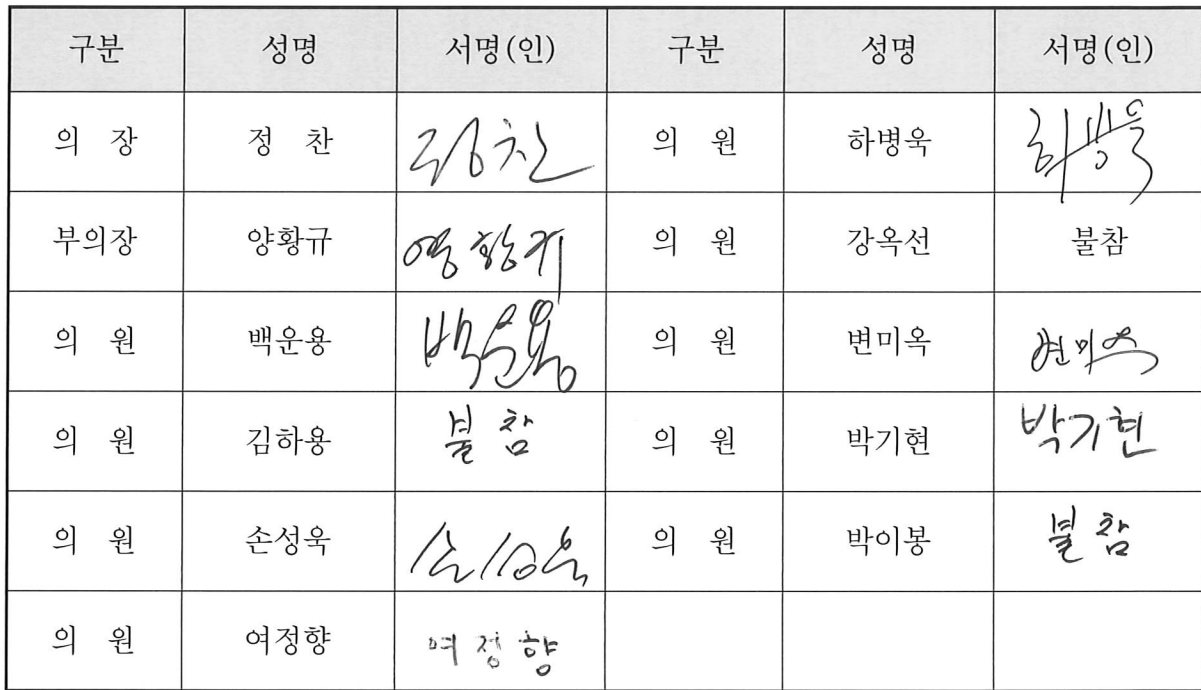 구분 성명 서명(인) 구분 성명 서명(인)
의 장 정 찬 정찬 의 원 하병욱 하병욱
부의장 양황규 양황규 의 원 강옥선 불참
의 원 백운용 백운용 의 원 변미옥 변미옥
의 원 김하용 불참 의 원 박기현 박기현
의 원 손성욱 손성욱 의 원 박이봉 불참
의 원 여정향 여정향